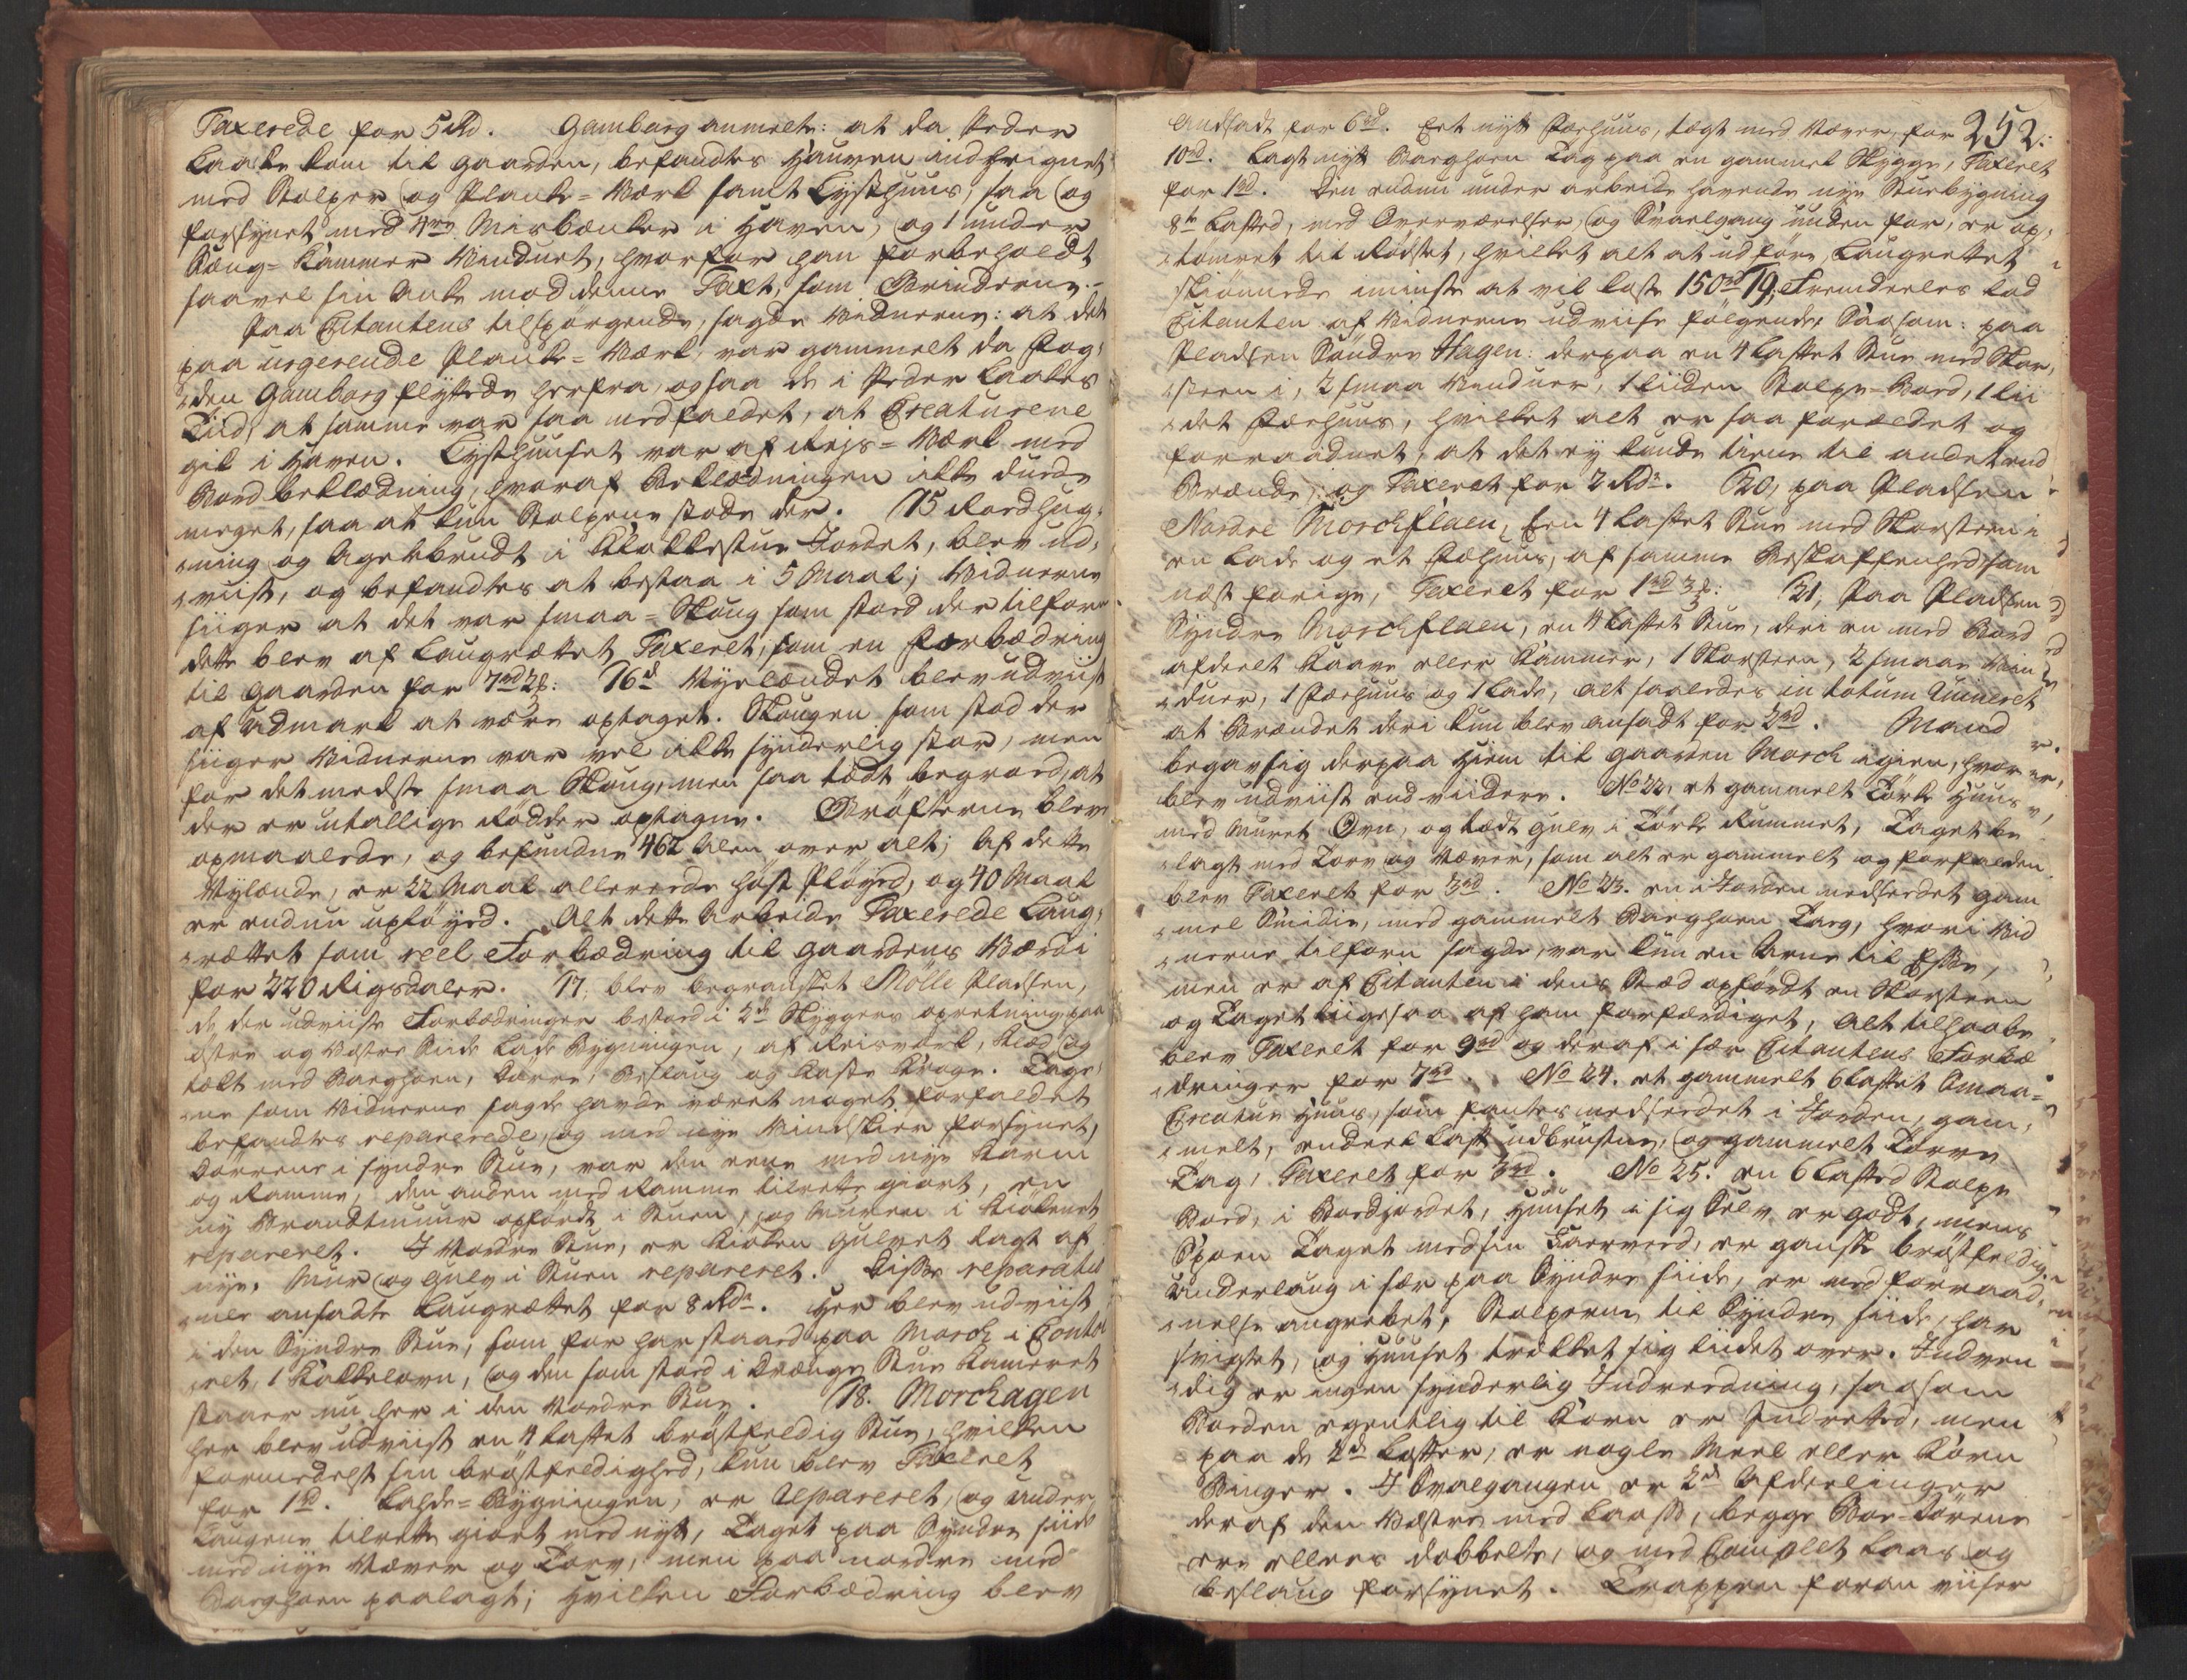 Taxerede for 5 Rd. Gamborg anmelte: at da Peder
Laake kom til gaarden, befandtes Hauven indheignet
med Stolper og Planke-Værk samt Lysthuus, saa og
forsynet med Miibænker i Haven, og 1 under
Seng-Kammer Vinduet, hvorfor han forbeholdt
saavel sin Anke mod denne Taxt, som Grinderne.
Paa Citantens tilspørgende, sagde Vidnerne: at det
paa urgerende Planke-Værk, var gammelt da Fog-
den Gamborg flyttede herfra, ogsaa de i Peder Laakes
Tiid, at samme var saa nedfaldet, at Creaturene
gik i Haven. Lysthuuset var af Reis-Værk med
Bord beklædning, hvoraf Beklædningen ikke duede
meget, saa at kun Stolperne stode der. 15 Rordhug-
ning og Agerbrudt i Klokkestue Jordet, blev ud-
viist, og befandtes at bestaa i 5 Maal; Vidnerne
siiger at det var smaa-Skoug som stoed der tilforn
dette blev af Laugrættet Taxeret, som en Forbædring
til gaarden for 7rd 2. 16de Nyelændet blev udviist
af Udmark at være optaget. Skougen som stod der
siiger Vidnerne var vel ikke synderlig stor, men
for det meste smaa Skoug, men saa tædt begroed, at
der er utallige Rødder optagne. Grøfterne blev
opmaalede, og befunden 462 Alen over alt; Af dette
Nylænde, er 22 Maal allereede høst Pløyed, og 40 Maal
er endnu upløyed. Alt dette Arbeide Taxerede Laug-
rættet som reel Forbædring til gaardens Værdi
for 220 Rigsdaler. 17, blev begranshet Mølle Pladsen,
de der udviiste Forbædringer bestoed i 2de Skyggers opretning paa
østre og Vestre Siide Lade Bygningen, af Reisværk, Klæd og
tækt med Borghoen, Dørre, Beslaug og kaste Kroge. Tage-
ne som Vidnerne sagde havde været noget forfaldet
befandtes reparerede, og med nye Vindskier forsynet,
Dørrene i syndre Stue, var den eene med nye Karm
og Ramme, den anden med Ramme tilrette giort, en
ny Brandtmuur opført i Stuen, og Muren i Kiøkenet
repareret. I Nordre Stue, er Kiøken gulvet lagt af
nye, Muur og gulv i Stuen repareret. Disse reparatio-
ner ansadte Laugrættet for 8 Rdr. Her blev udviist
i den Syndre Stue, som før har staaed paa Morch i Conto-
ret, 1 Kakkelovn, og den som stoed i Drænge Stue Kameret
staaer nu her i den Nordre Stue. 18. Morchagen
her blev udviist en 4 Laftet brøstfeldig Stue, hvilken
formedelst sin brøstfeldighed, kun blev Taxeret
for 1rd. Lahde-Bygningen, er Repareret, og under
Laugene tilrette giort med nytt, Taget paa Syndre siide
med nye Næver og Torv, men paa nordre med
Borghoen paalagt; Hvilken Forbædring blev
252.
Andsadt for 6rd. Eet nytt Fæehuus, tægt med Næver, for
10rd. Lagt nytt Borghoen Tag paa en gammel Skygge, Taxeret
for 1rd. Den endnu under arbeide havende nye Stuebygning
8te Lafted, med Overværelser, og Svaelgang uden for, er op-
tømret til Røstet, hvilket alt at udføre, Laugrettet
skiønnede iminste at vil koste 150rd 19, Fremdeeles lod
Citanten af Vidnerne udviise følgende, Saasom: paa
Pladsen Søndre Hagen: derpaa en 4 Laftet Stue med Skor-
steen i, 2 smaa Vinduer, 1 liiden Stolpe-Bord, 1 lii-
det Fæehuus, hvilket alt er saa forældet og
forraadnet, at det ey kunde tiene til andet end
Brænde, og Taxeret for 2 Rdr. 20, paa Pladsen
Nordre Morchflaen, Een 4 Laftet Stue med Skorsteen i
en Lade og et Fæhuus, af samme Beskaffenhed som
næst forige, Taxeret for 1rd 3. 21, Paa Pladsen
Syndre Morchflaen, en 4 Laftet Stue, deri en med Bord
afdeelt Kaave eller Kammer, 1 Skorsteen, 2 smaae Vin-
duer, 1 Fæehuus og 1 Lade, alt saaledes in totum Ruineret
at Brændet deri kun blev ansadt for 2rd. Mand
begav sig derpaa Hiem til gaarden Morch igien, hvor
blev udviist end viidere. No 22, et gammelt Tørke Huus
med Muret Ovn, og tædt gulv i Tørke Rummet, Taget be-
lagt med Torv og Næver, som alt er gammelt og forfalden
blev Taxeret for 3rd. No 23. en i Jorden nedsædet gam-
mel Smidie, med gammelt Borghoen Taeg, hvori Vid-
nerne tilforn sagde, var kun en Arne til Esse,
men er af Citanten i dens Stæd opført en Skorsteen
og Taget liigesaa af ham forfærdiget, Alt tilhoobe
blev Taxeret for 9rd og deraf i sær Citantens Forbæ-
dringer for 7rd. No 24. et gammelt 6 Laftet Smaa-
Creatur Huus, som fantes nedseedet i Jorden, gam-
melt, endeel Laft udbrustne, og gammelt Torve
Tag, Taxeret for 3rd. No 25. en 6 Lafted Stolpe
Bord, i Bordjordet, Huuset i sig Selv er godt, mens
Spoen Taget med sin Taerveed, er ganske brøstfeldig,
Underlaug i sær paa Syndre siide, er med forraad-
nelse angrebet, Stolperne til Syndre siide, har
svigtet, og Huuset trækket sig liidet over. Indven-
dig er ingen synderlig Indreedning, saasom
Borden egentlig til Korn er Indretted, men
paa de 2de Lofter, er nogle Meel eller Korn
Binger. I Svalegangen er 2de Afdeelinger
deraf den Vestre med Laas, begge Boe-Dørene
ere ellers dobbelte, og med Complet Laas og
beslaug forsynet. Trappen foran viiser